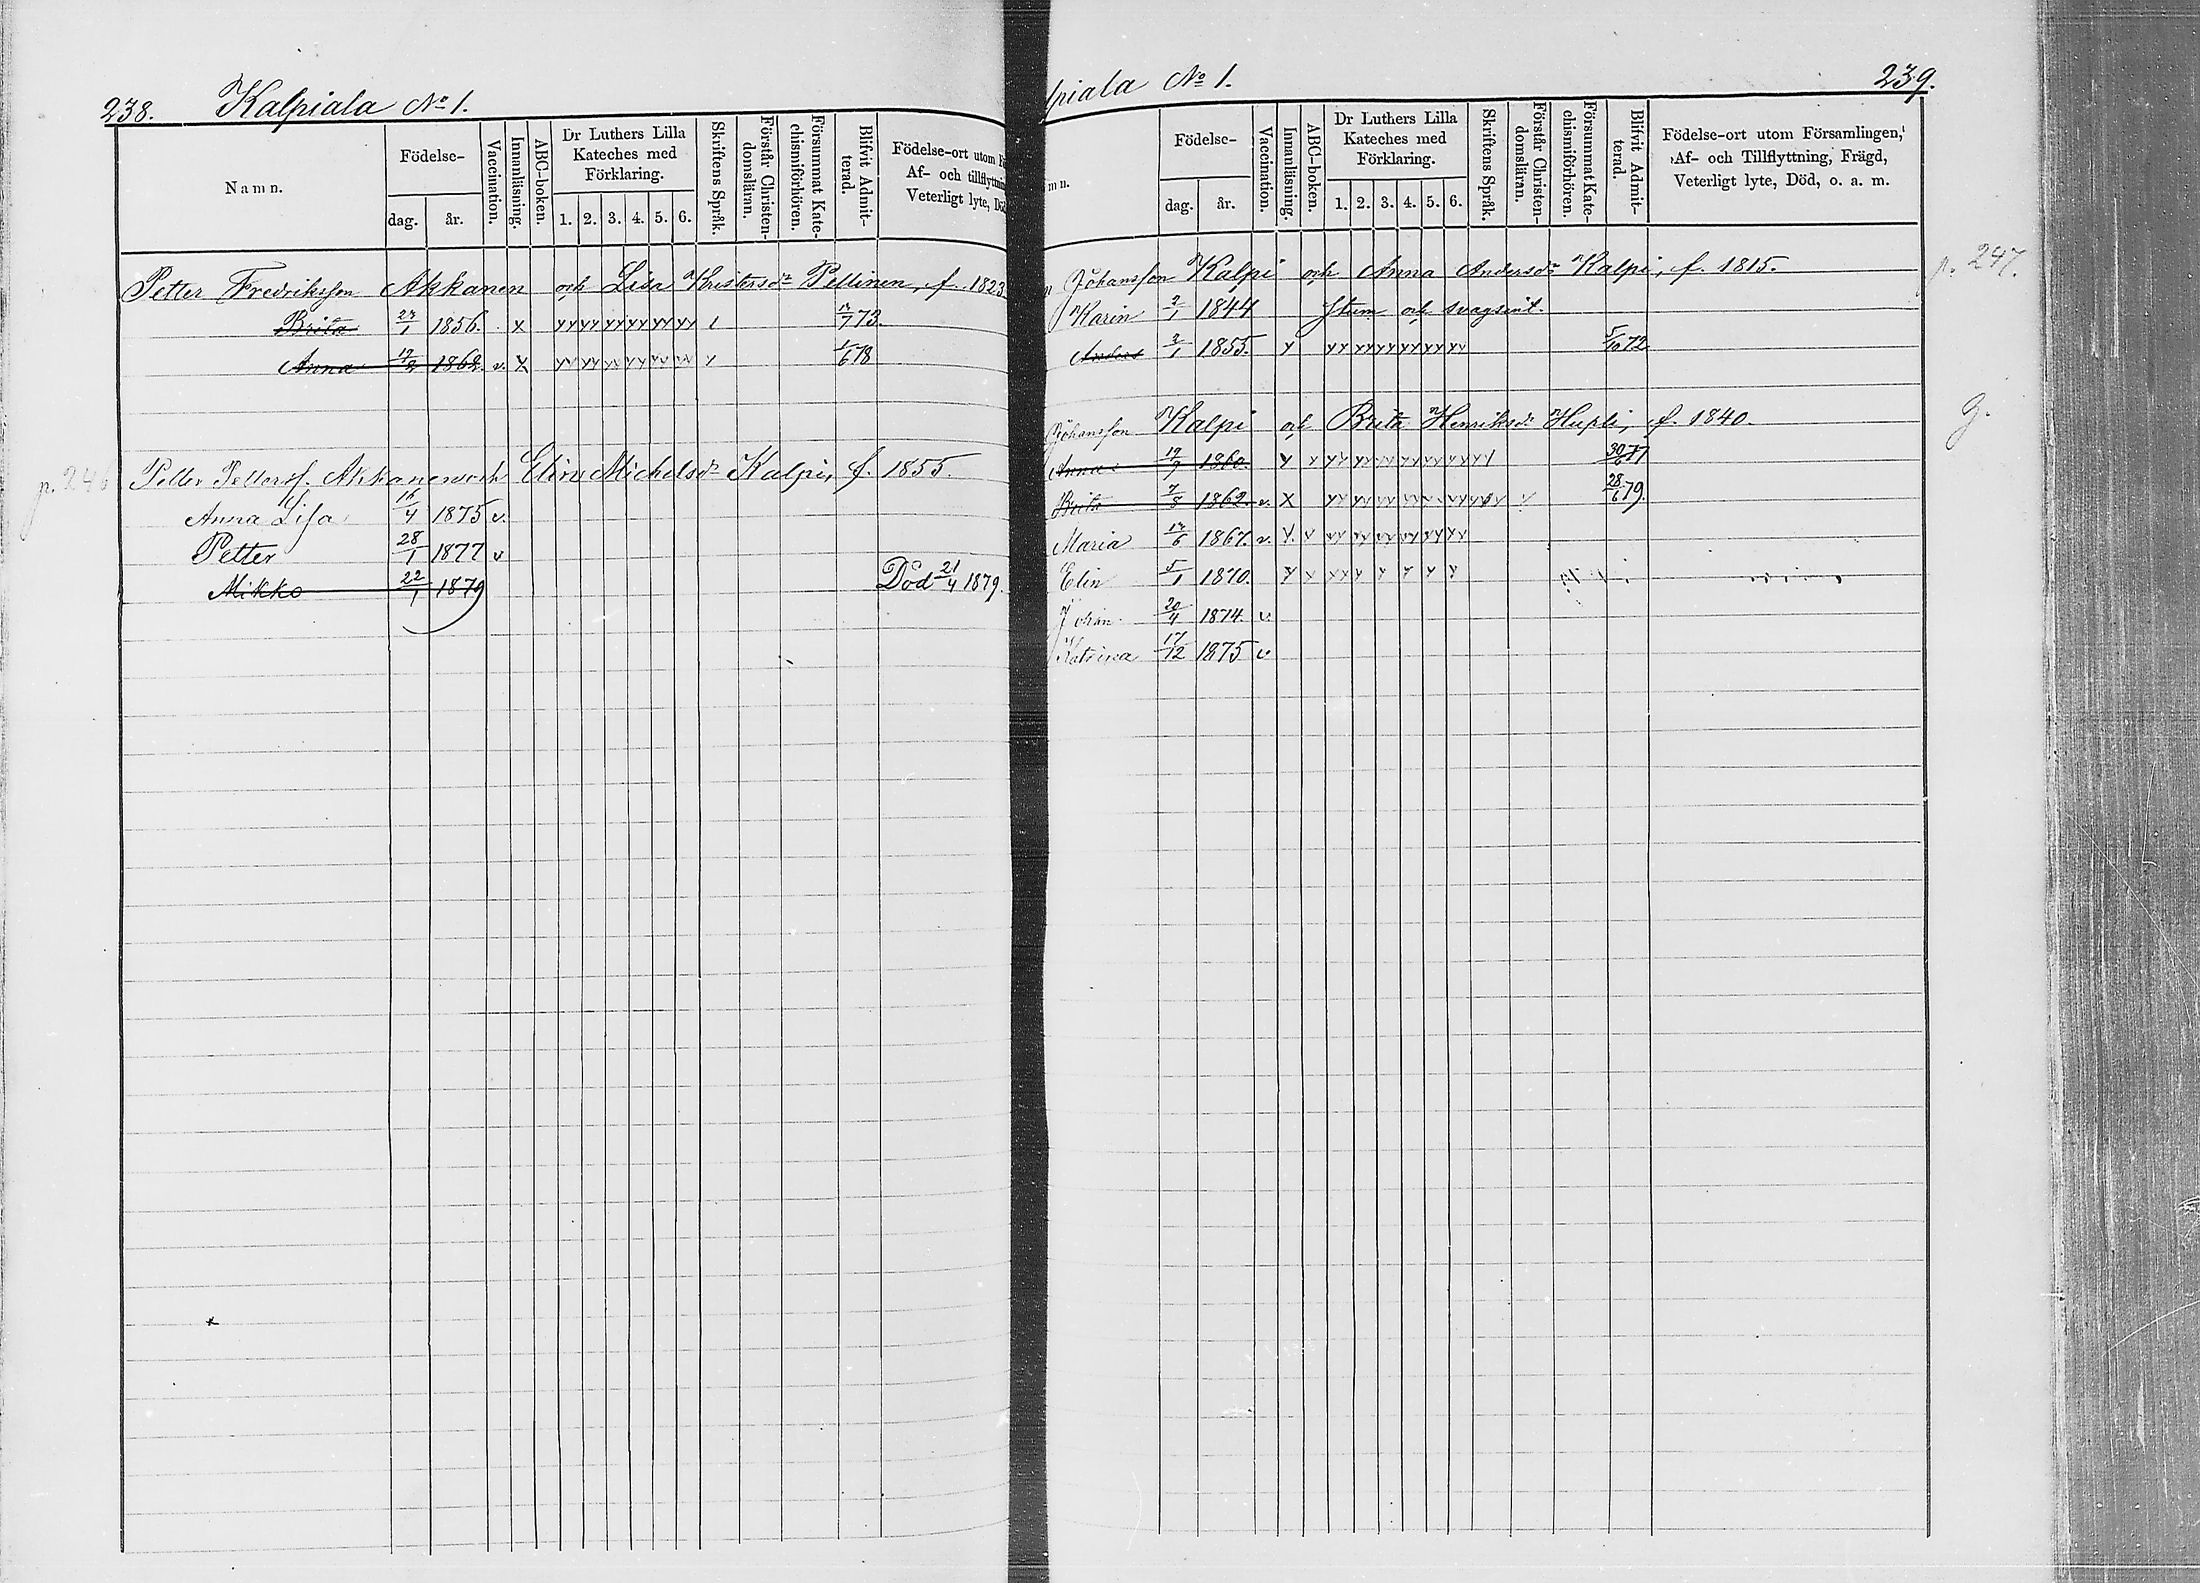 238. Kalpiala No 1.
Namn.
Födelse-
dag. år.
Vaccination.
Innanläsning.
ABC-boken.
Dr Luthers Lilla
Kateches med
Förklaring.
1. 2. 3. 4. 5. 6.
Skriftens Språk.
Förstår Christen-
domsläran.
Försummat Kate-
chismiförhören.
Blifvit Admit-
terad.
Födelse-ort utom
Af- och tillflyttnin
Veterligt lyte, Dö
Petter Fredriksson Akkanen och Lisa Kristersdr Pellinen, f. 1823
Brita 23/1 1856. x yy yy yy yy yy yy 1 7/7 73.
Anna 1862. v. x yy yy yy yy yy yy y 1/6 78
p. 246 Petter Petterss. Akkanen och Elin Michelsdr Kalpi, f. 1855.
Anna Lisa 16/4 1875 v.
Petter 28/1 1877 v
Mikko 22/1 1879 Död 21/4 1879.
lpiala No 1. 239.
mn.
Födelse-
dag. år.
Vaccination.
Innanläsning.
ABC-boken.
Dr Luthers Lilla
Kateches med
Förklaring.
1. 2. 3. 4. 5. 6.
Skriftens Språk.
Förstår Christen-
domsläran.
Försummat Kate-
chismiförhören.
Blifvit Admit-
terad.
Födelse-ort utom Församlingen,
Af- och Tillflyttning, Frägd,
Veterligt lyte, Död, o. a. m.
n Johansson Kalpi och Anna Andersdr Kalpi, f. 1815. p. 247.
Karin 2/1 1844 stum och svagsint.
Anders 2/1 1855. y yy yy yy yy yy yy 5/10 72
Johansson Kalpi och Brita Henriksdr Hupli, f. 1840. g.
Anna 19/9 1860. y y yy yy yy yy yy yy y 30/6 77
Brita 7/8 1862. v. x yy yy yy yy yy yy y 28/6 79.
Maria 13/6 1867. v. y. y yy yy yy yy yy yy
Elin 5/1 1870. y y yy y y y y y
Johan 20/4 1874. v.
Katrina 17/12 1875 v